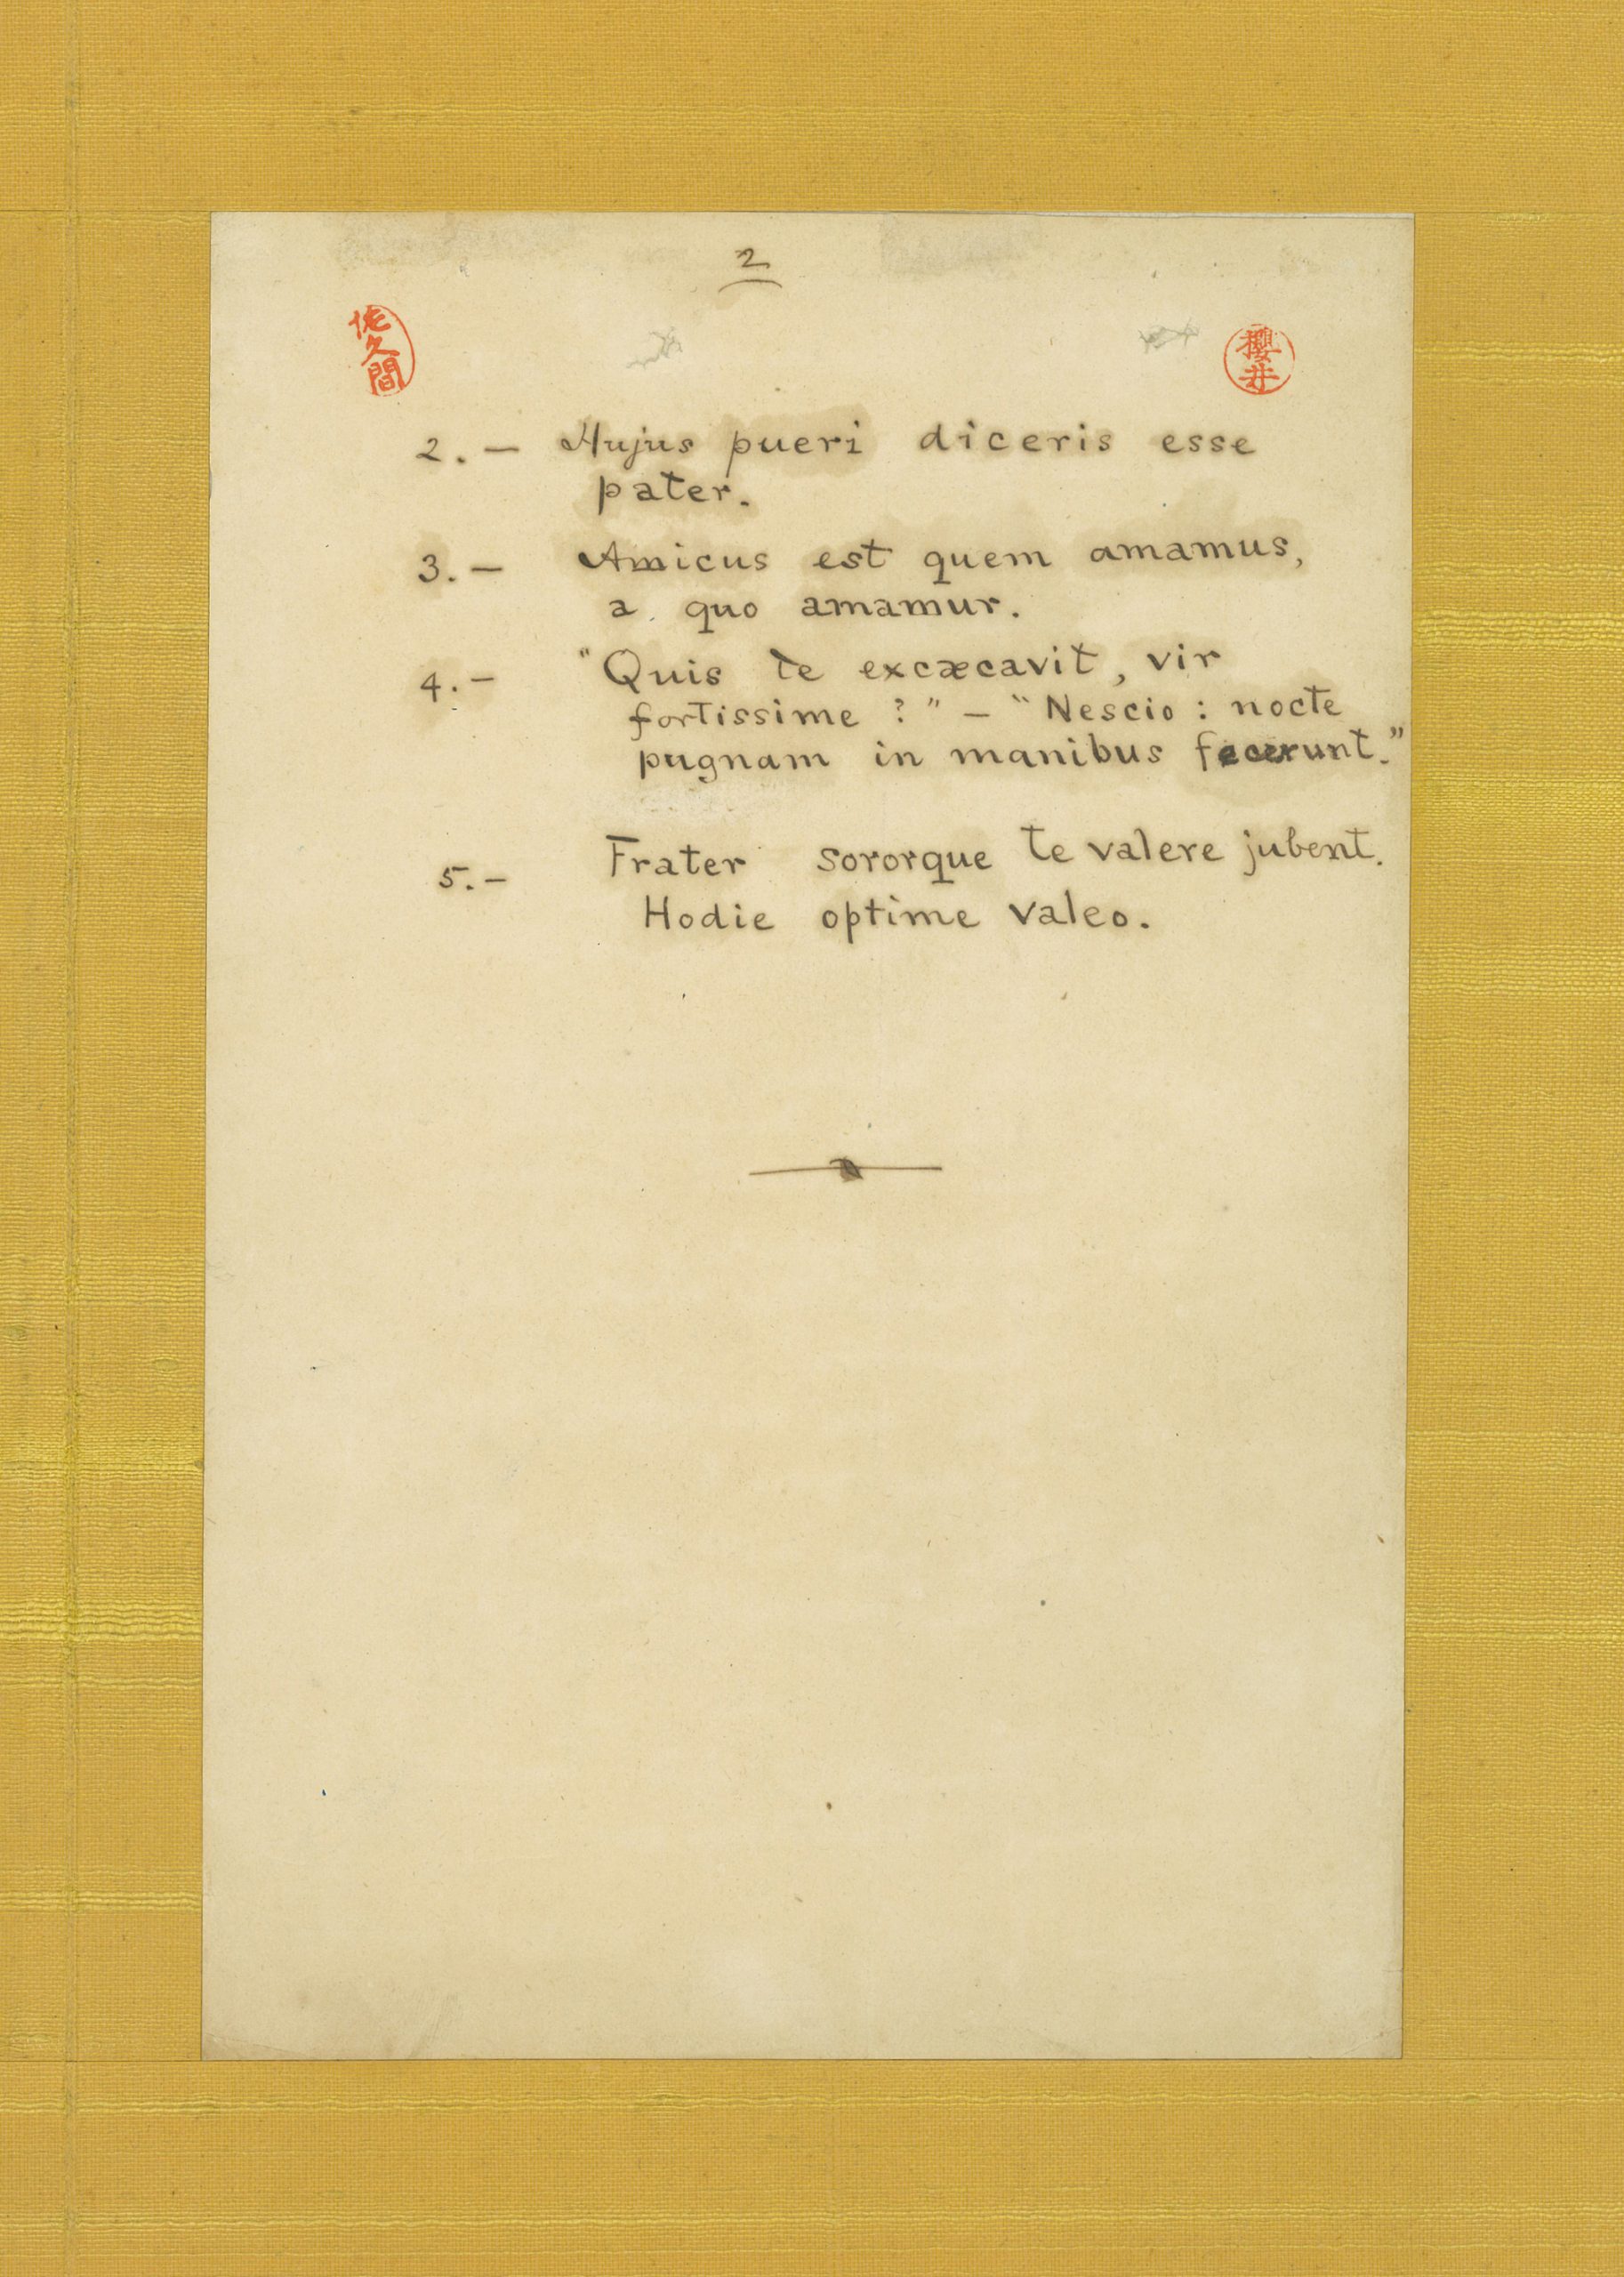 2
佐久間
櫻井
2. — Hujus pueri diceris esse
pater.
3. — Amicus est quem amamus,
a quo amamur.
4. — "Quis te excæcavit, vir
fortissime ?" — "Nescio : nocte
pugnam in manibus fecerunt."
5. — Frater sororque te valere jubent.
Hodie optime valeo.